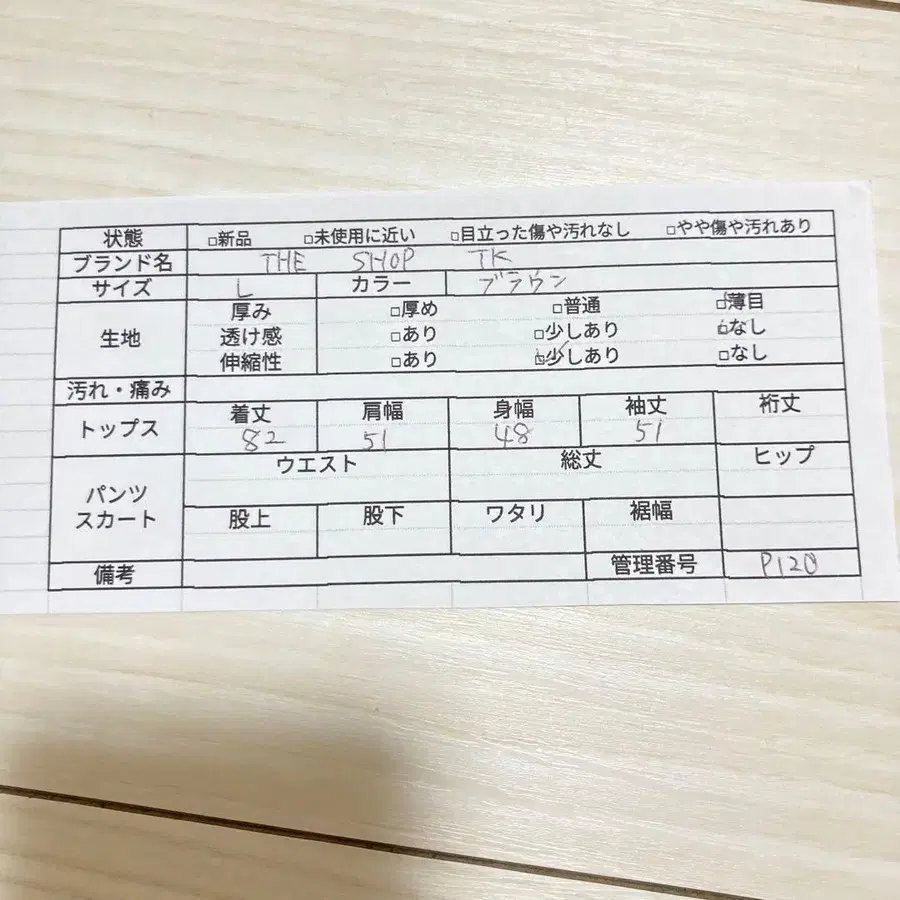 状態 □新品 □未使用に近い □目立った傷や汚れなし □やや傷や汚れあり
ブランド名 THE SHOP TK
サイズ L カラー ブラウン
生地 厚み □厚め □普通 ☑薄目
透け感 □あり □少しあり ☑なし
伸縮性 □あり ☑少しあり □なし
汚れ・痛み
トップス 着丈 肩幅 身幅 袖丈 裄丈
82 51 48 51
パンツ スカート ウエスト 総丈 ヒップ
股上 股下 ワタリ 裾幅
備考 管理番号 P120